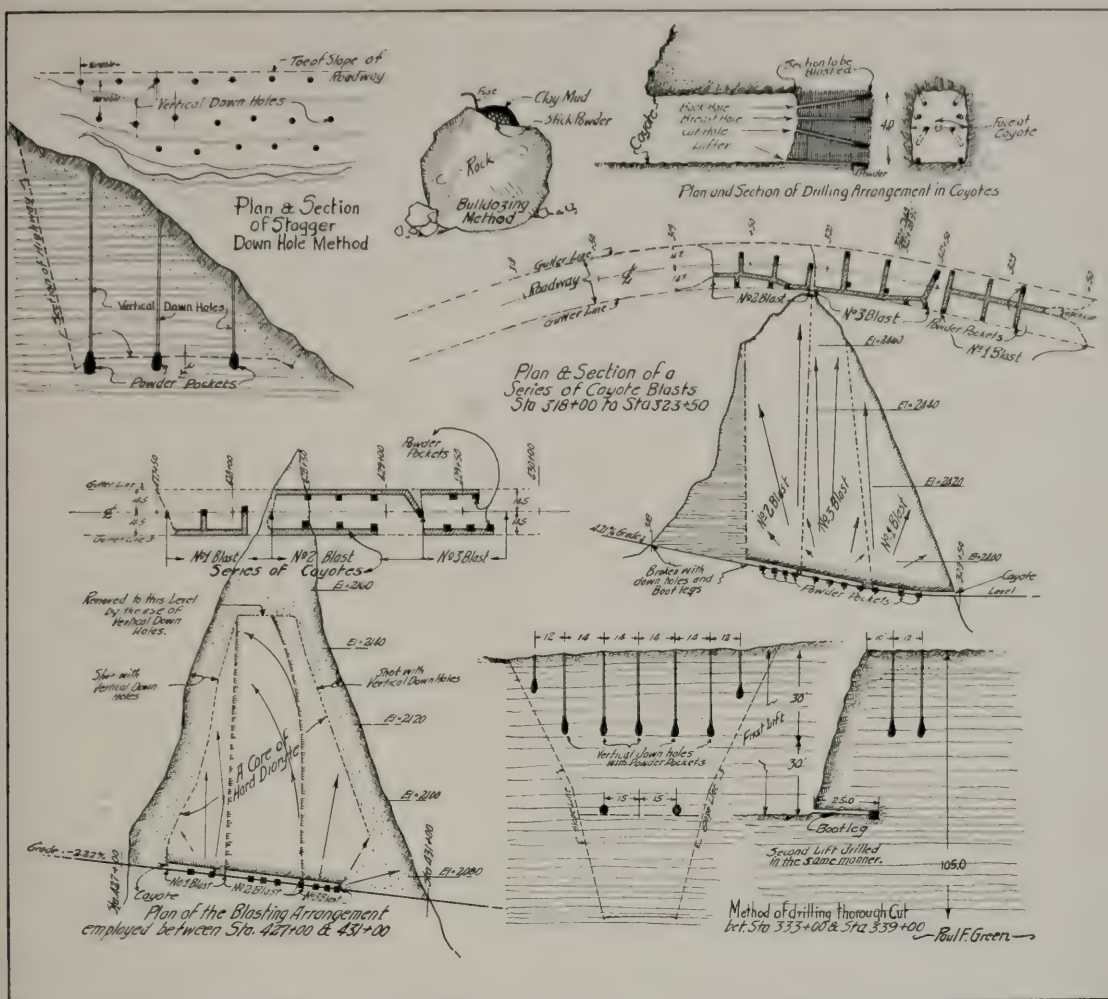 Toe of Slope of
Roadway
Variable
Variable
Vertical Down Holes
Plan & Section
of Stagger
Down Hole Method
Vertical Down Holes
Powder Pockets
Fuse
Clay Mud
Stick Powder
Rock
Bulldozing
Method
Section to be
Blasted
Coyote
Back Hole
Breast Hole
Cut Hole
Lifter
Powder
4.0
Face of
Coyote
Plan and Section of Drilling Arrangement in Coyotes
318
+50
319
+50
+50
323
+50
Gutter Line
Roadway
Gutter Line
14.5
No 2 Blast
No 3 Blast
Powder Pockets
No 1 Blast
Plan & Section of a
Series of Coyote Blasts
Sta 318+00 to Sta 323+50
El=2440
El=2420
El=2400
No 2 Blast
No 3 Blast
No 1 Blast
323+50
Broken with
down holes and
Bootlegs
Powder Pockets
Coyote
Level
Powder
Pockets
427+50
428+00
429+00
429+50
430+00
Gutter Line
14.5
14.5
Gutter Line
14.5
14.5
No 1 Blast
No 2 Blast
No 3 Blast
Series of Coyotes
Removed to this Level
by the use of
Vertical Down
Holes.
El=2160
El=2140
Shot with
Vertical Down
Holes
Shot with
Vertical Down Holes
El=2120
A Core of
Hard Dioryte
El=2100
El=2080
Grade
Sta 427+00
Sta 431+00
Coyote
No 1 Blast
No 2 Blast
No 3 Blast
Plan of the Blasting Arrangement
employed between Sta. 427+00 & 431+00
12
14
14
14
14
12
12
30'
First Lift
30'
Vertical down holes
with Powder Pockets
15
15
Slope Line
Slope Line
25.0
Bootleg
Second Lift drilled
in the same manner.
105.0
Method of drilling thorough Cut
bet. Sta 333+00 & Sta 339+00
Paul F. Green